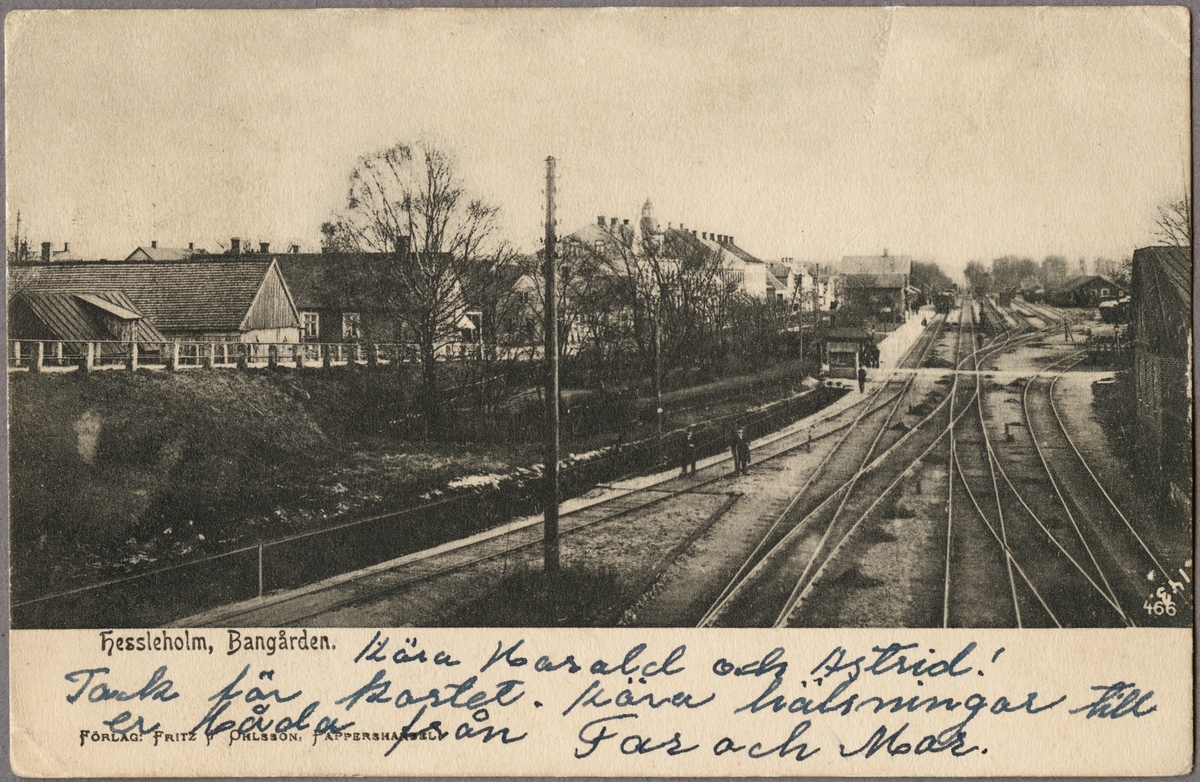 466
Hessleholm, Bangården.
Kära Harald och Astrid!
Tack för kortet. Kära hälsningar till
er båda från Far och Mor.
FÖRLAG: FRITZ OHLSSON, PAPPERSHANDEL